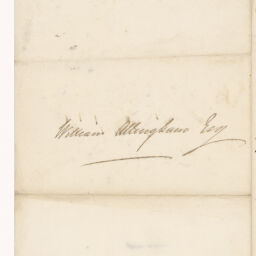 William Allingham Esq